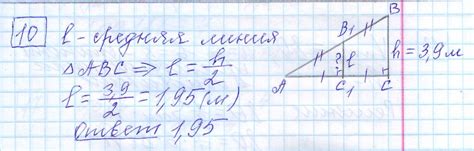 10
l - средняя линия
△ABC ⇒ l = h/2
l = 3,9/2 = 1,95 (м)
Ответ 1,95
B
B₁
? l
h = 3,9 м
A
C₁
C